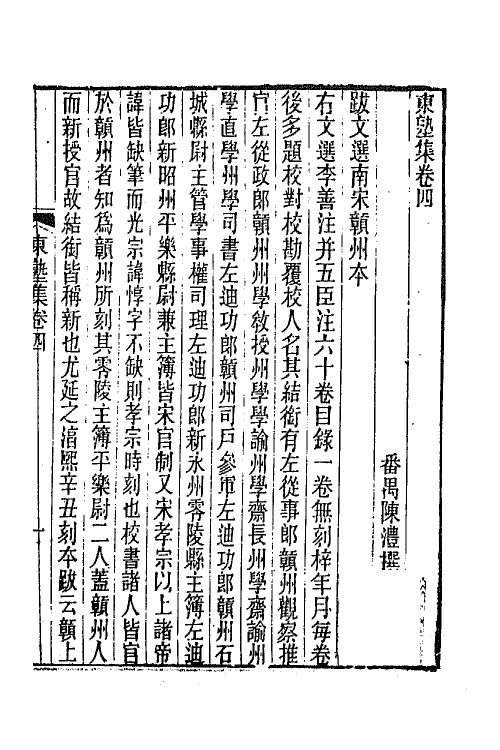 東塾集卷四
番禺陳澧撰
跋文選南宋贛州本
右文選李善注并五臣注六十卷目錄一卷無刻梓年月每卷
後多題校對校勘覆校人名其結銜有左從事郎贛州觀察推
官左從政郎贛州州學敎授州學學諭州學齋長州學齋諭州
學直學州學司書左迪功郎贛州司戶參軍左迪功郎贛州石
城縣尉主管學事權司理左迪功郎新永州零陵縣主簿左迪
功郎新昭州平樂縣尉兼主簿皆宋官制又宋孝宗以上諸帝
諱皆缺筆而光宗諱惇字不缺則孝宗時刻也校書諸人皆官
於贛州者知爲贛州所刻其零陵主簿平樂尉二人蓋贛州人
而新授官故結銜皆稱新也尤延之淳熙辛丑刻本跋云贛上
東塾集卷四
一